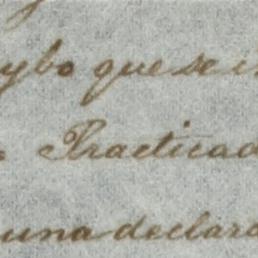 ybo que se
Practicad
una declara